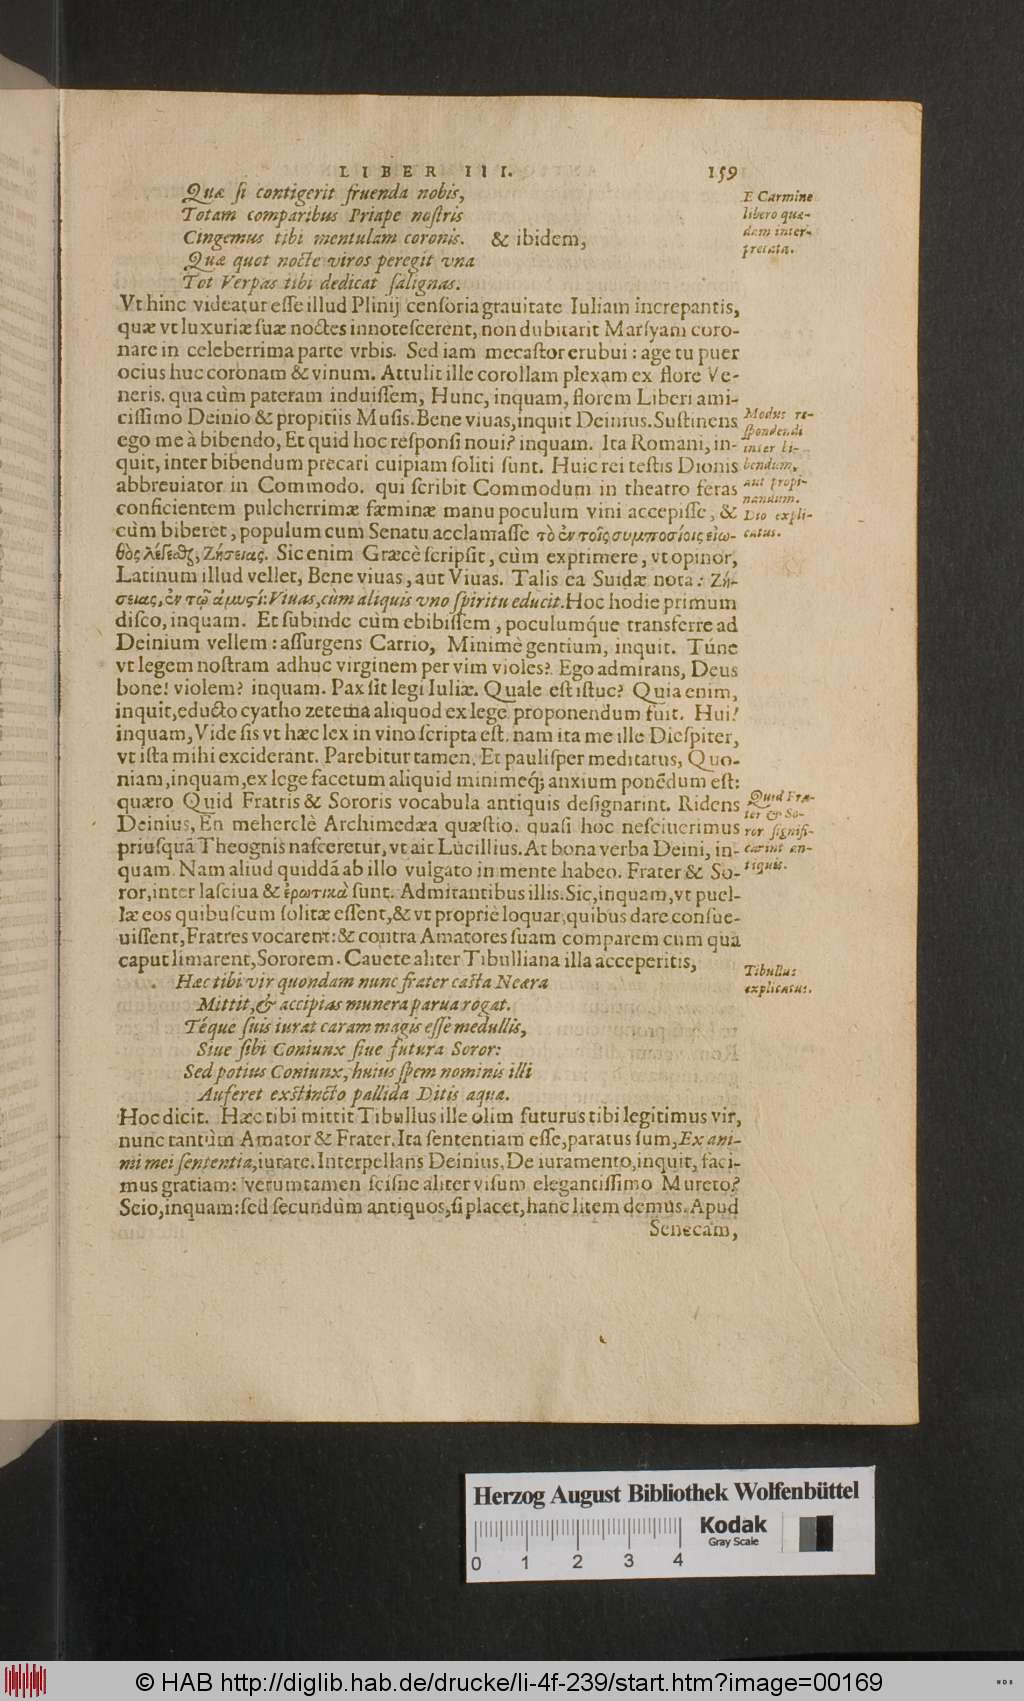 LIBER III. 159
Quæ ſi contigerit fruenda nobis,
Totam comparibus Priape noſtris
Cingemus tibi mentulam coronis. & ibidem,
Quæ quot nocte viros peregit vna
Tot Verpas tibi dedicat ſalignas.
E Carmine
libero quæ-
dam inter-
pretata.
Vt hinc videatur eſſe illud Plinij cenſoria grauitate Iuliam increpantis,
quæ vt luxuriæ ſuæ noctes innoteſcerent, non dubitarit Marſyam coro-
nare in celeberrima parte vrbis. Sed iam mecaſtor erubui: age tu puer
ocius huc coronam & vinum. Attulit ille corollam plexam ex flore Ve-
neris. qua cùm pateram induiſſem, Hunc, inquam, florem Liberi ami-
ciſſimo Deinio & propitiis Muſis. Bene viuas, inquit Deinius. Suſtinens
ego me à bibendo, Et quid hoc reſponſi noui? inquam. Ita Romani, in-
quit, inter bibendum precari cuipiam ſoliti ſunt. Huic rei teſtis Dionis
abbreuiator in Commodo. qui ſcribit Commodum in theatro feras
conficientem pulcherrimæ fæminæ manu poculum vini accepiſſe, &
cùm biberet, populum cum Senatu acclamaſſe τὸ ἐν τοῖς συμποσίοις εἰω-
θὸς λέγεσθζ, Ζήσειας. Sic enim Græcè ſcripſit, cùm exprimere, vt opinor,
Latinum illud vellet, Bene viuas, aut Viuas. Talis ea Suidæ nota: Ζή-
σειας, ἐν τῷ ἀμυστί: Viuas, cùm aliquis vno ſpiritu educit. Hoc hodie primum
diſco, inquam. Et ſubinde cùm ebibiſſem, poculumq́ue transferre ad
Deinium vellem: aſſurgens Carrio, Minimè gentium, inquit. Túne
vt legem noſtram adhuc virginem per vim violes? Ego admirans, Deus
bone! violem? inquam. Pax ſit legi Iuliæ. Quale eſt iſtuc? Quia enim,
inquit, educto cyatho zetema aliquod ex lege proponendum fuit. Hui!
inquam, Vide ſis vt hæc lex in vino ſcripta eſt. nam ita me ille Dieſpiter,
vt iſta mihi exciderant. Parebitur tamen. Et pauliſper meditatus, Quo-
niam, inquam, ex lege facetum aliquid minimeq́; anxium ponẽdum eſt:
quæro Quid Fratris & Sororis vocabula antiquis deſignarint. Ridens
Deinius, En meherclè Archimedæa quæſtio. quaſi hoc neſciuerimus
priuſquã Theognis naſceretur, vt ait Lucillius. At bona verba Deini, in-
quam. Nam aliud quiddã ab illo vulgato in mente habeo. Frater & So-
ror, inter laſciua & ἐρωτικὰ ſunt. Admirantibus illis. Sic, inquam, vt puel-
læ eos quibuſcum ſolitæ eſſent, & vt propriè loquar, quibus dare conſue-
uiſſent, Fratres vocarent: & contra Amatores ſuam comparem cum quâ
caput limarent, Sororem. Cauete aliter Tibulliana illa acceperitis,
Modus re-
ſpondendi
inter bi-
bendum,
aut propi-
nandum.
Dio expli-
catus.
Quid Fra-
ter & So-
ror ſignifi-
carint an-
tiquis.
Hæc tibi vir quondam nunc frater caſta Neæra
Mittit, & accipias munera parua rogat.
Téque ſuis iurat caram magis eſſe medullis,
Siue ſibi Coniunx ſiue futura Soror:
Sed potius Coniunx, huius ſpem nominis illi
Auferet exſtincto pallida Ditis aqua.
Tibullus
explicatus.
Hoc dicit. Hæc tibi mittit Tibullus ille olim futurus tibi legitimus vir,
nunc tantùm Amator & Frater. Ita ſententiam eſſe, paratus ſum, Ex ani-
mi mei ſententia, iurare. Interpellans Deinius, De iuramento, inquit, faci-
mus gratiam: verumtamen ſciſne aliter viſum elegantiſſimo Mureto?
Scio, inquam: ſed ſecundùm antiquos, ſi placet, hanc litem demus. Apud
Senecam,
Herzog August Bibliothek Wolfenbüttel
Kodak
Gray Scale
0 1 2 3 4
© HAB http://diglib.hab.de/drucke/li-4f-239/start.htm?image=00169